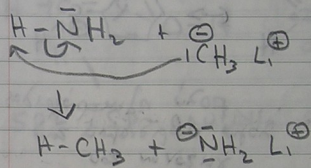 H-N̄H₂ + ⊖|CH₃ Li⊕
H-CH₃ + ⊖N̄H₂ Li⊕